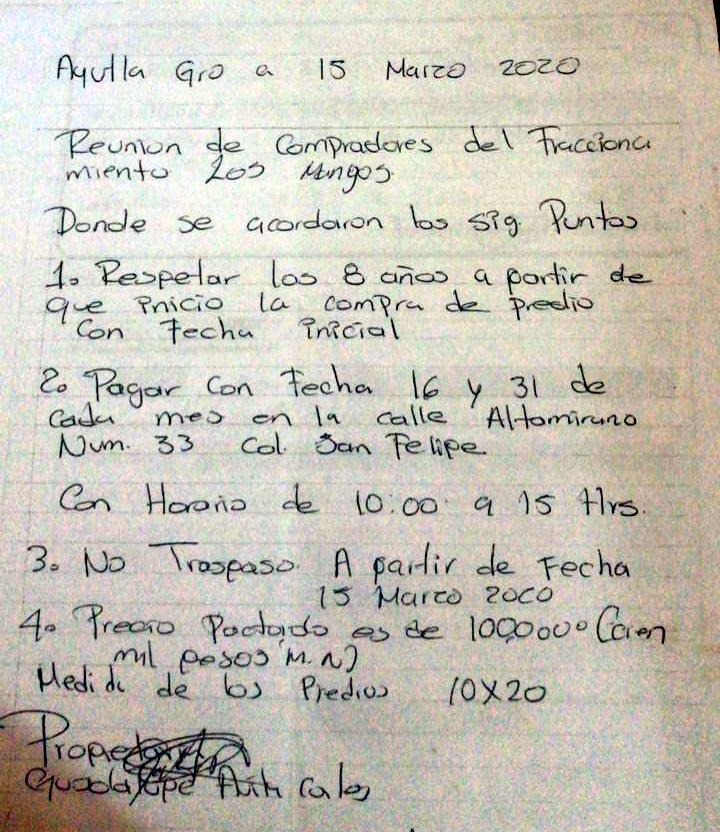 Ayutla Gro a 15 Marzo 2020
Reunion de Compradores del Fracciona
miento Los Mangos.
Donde se acordaron los sig Puntos
1. Respetar los 8 años a partir de
que inicio la compra de predio
Con Fecha inicial
2. Pagar Con Fecha 16 y 31 de
Cada mes en la calle Altamirano
Num. 33 Col. San Felipe
Con Horario de 10:00 a 15 Hrs.
3. No Traspaso. A partir de Fecha
15 Marzo 2020
4. Precio Pactado es de 100,000.00 (cien
mil pesos M.N)
Medida de los Predios 10x20
Guadalupe